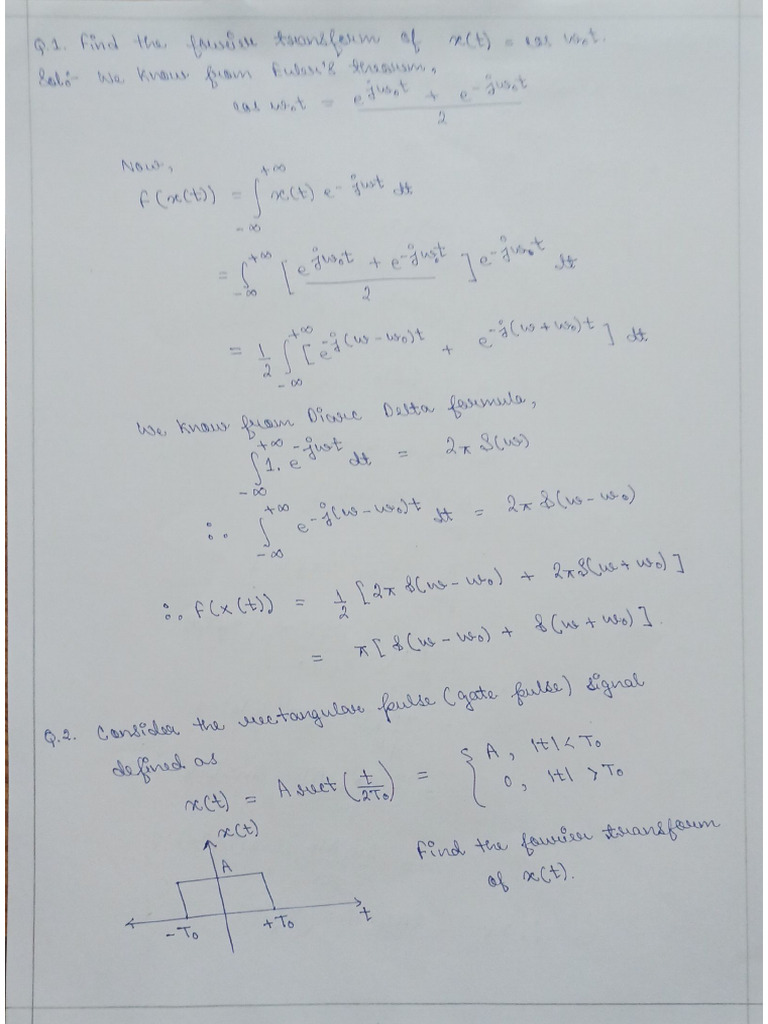 Q.1. Find the fourier transform of x(t) = cos w₀t.
Solⁿ- We know from Euler's theorem,
cos w₀t = (e^{jw₀t} + e^{-jw₀t})/2
Now,
F(x(t)) = ∫_{-∞}^{+∞} x(t) e^{-jwt} dt
= ∫_{-∞}^{+∞} [(e^{jw₀t} + e^{-jw₀t})/2] e^{-jw₀t} dt
= 1/2 ∫_{-∞}^{+∞} [e^{-j(w-w₀)t} + e^{-j(w+w₀)t}] dt
We know from Diarc Delta formula,
∫_{-∞}^{+∞} 1. e^{-jwt} dt = 2π δ(w)
∴ ∫_{-∞}^{+∞} e^{-j(w-w₀)t} dt = 2π δ(w-w₀)
∴ F(x(t)) = 1/2 [2π δ(w-w₀) + 2π δ(w+w₀)]
= π[δ(w-w₀) + δ(w+w₀)].
Q.2. Consider the rectangular pulse (gate pulse) signal
defined as
x(t) = A rect(t/2T₀) = { A, |t| < T₀
0, |t| > T₀
x(t)
A
-T₀ +T₀ t
Find the fourier transform
of x(t).